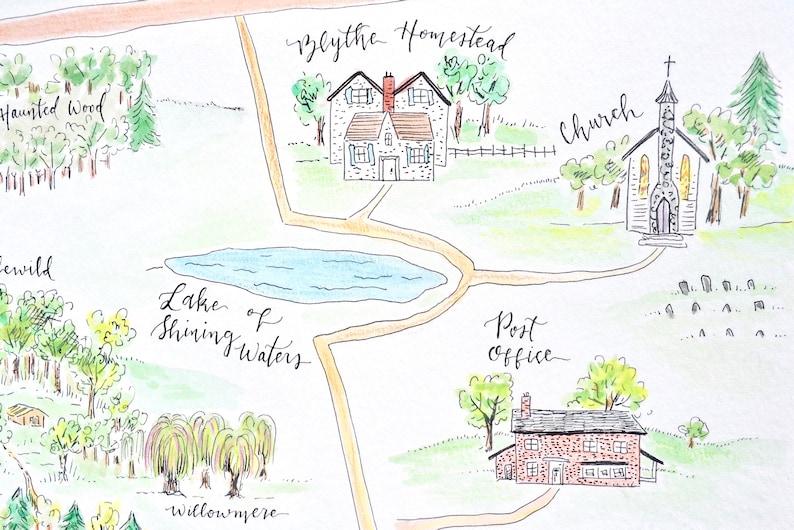 Blythe Homestead
Haunted Wood
Church
lewild
Lake of
Shining
Waters
Post
Office
Willowmere